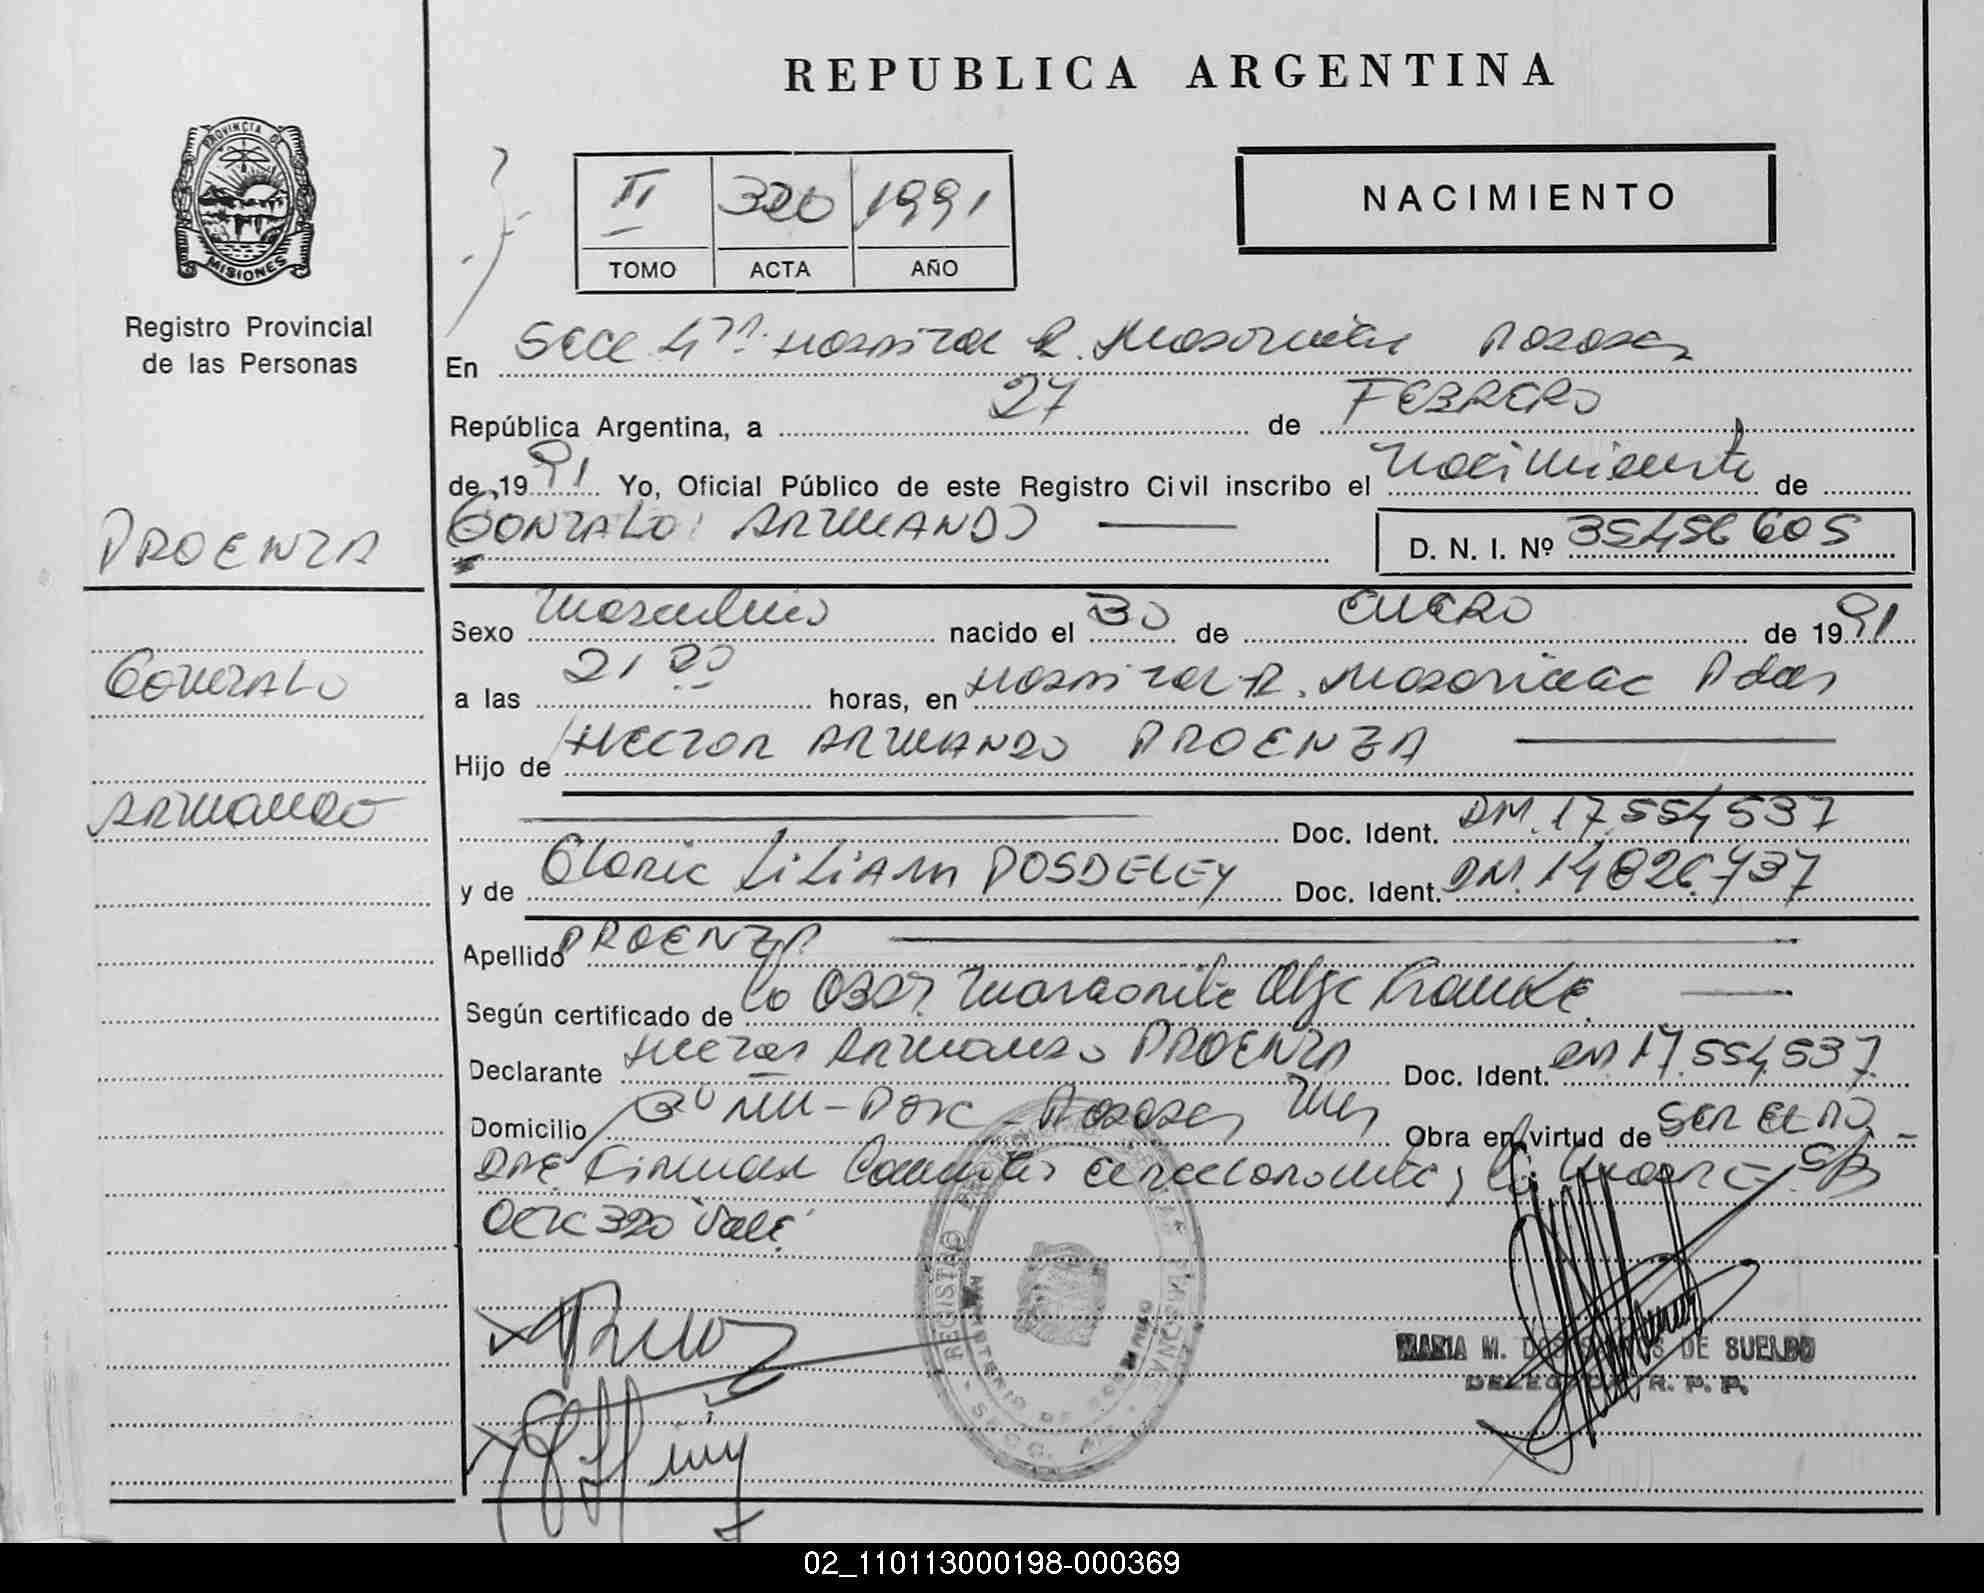 REPUBLICA ARGENTINA
PROVINCIA DE
MISIONES
Registro Provincial
de las Personas
II 320 1991
TOMO ACTA AÑO
NACIMIENTO
En Secc 4ta. Hospital R. Madariaga Posadas
República Argentina, a 27 de FEBRERO
de 1991 Yo, Oficial Público de este Registro Civil inscribo el Nacimiento de
GONZALO ARMANDO D. N. I. Nº 35456605
PROENZA
GONZALO
ARMANDO
Sexo Masculino nacido el 30 de ENERO de 1991
a las 21 00 horas, en Hospital R. Madariaga Pdas
Hijo de HECTOR ARMANDO PROENZA
Doc. Ident. DM. 17.554,537
y de Gloria LILIAM POSDELEY Doc. Ident. DM. 14826.737
Apellido PROENZA
Según certificado de la Obst. Margarita Olga Franke
Declarante Hector Armando PROENZA Doc. Ident. DM 17.554,537
Domicilio Posadas Mnes Obra en virtud de SER EL PA-
DRE Firman la Madre
320 Vale
REGISTRO PROVINCIAL DE LAS PERSONAS
MINISTERIO DE GOBIERNO
MARIA M. DOS SANTOS DE SUELDO
DELEGADA R. P. P.
02_110113000198-000369